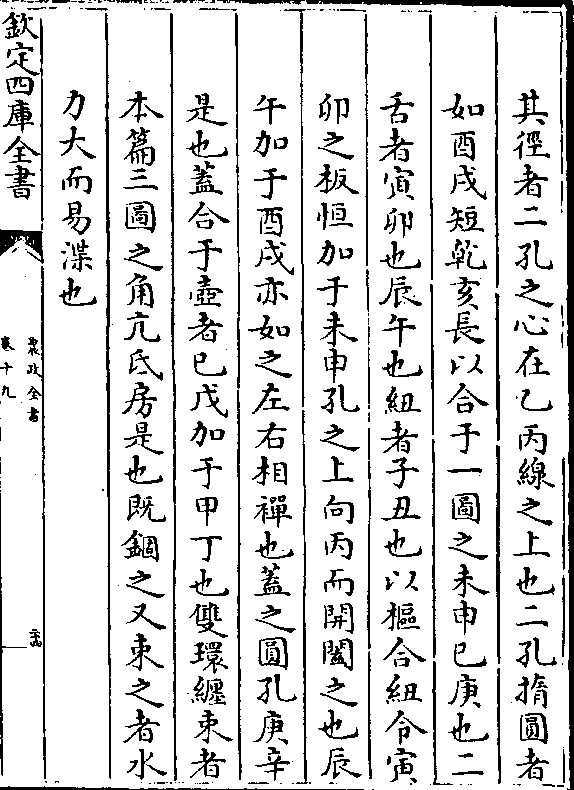 其徑者二孔之心在乙丙線之上也二孔撱圓者
如酉戌短乾亥長以合于一圖之未申巳庚也二
舌者寅卯也辰午也紐者子丑也以樞合紐令寅
卯之板恒加于未申孔之上向丙而開闔之也辰
午加于酉戌亦如之左右相禪也蓋之圓孔庚辛
是也蓋合于壺者已戊加于甲丁也雙環纏束者
本篇三圖之角亢氐房是也既錮之又束之者水
力大而易渫也
欽定四庫全書
農政全書
卷十九